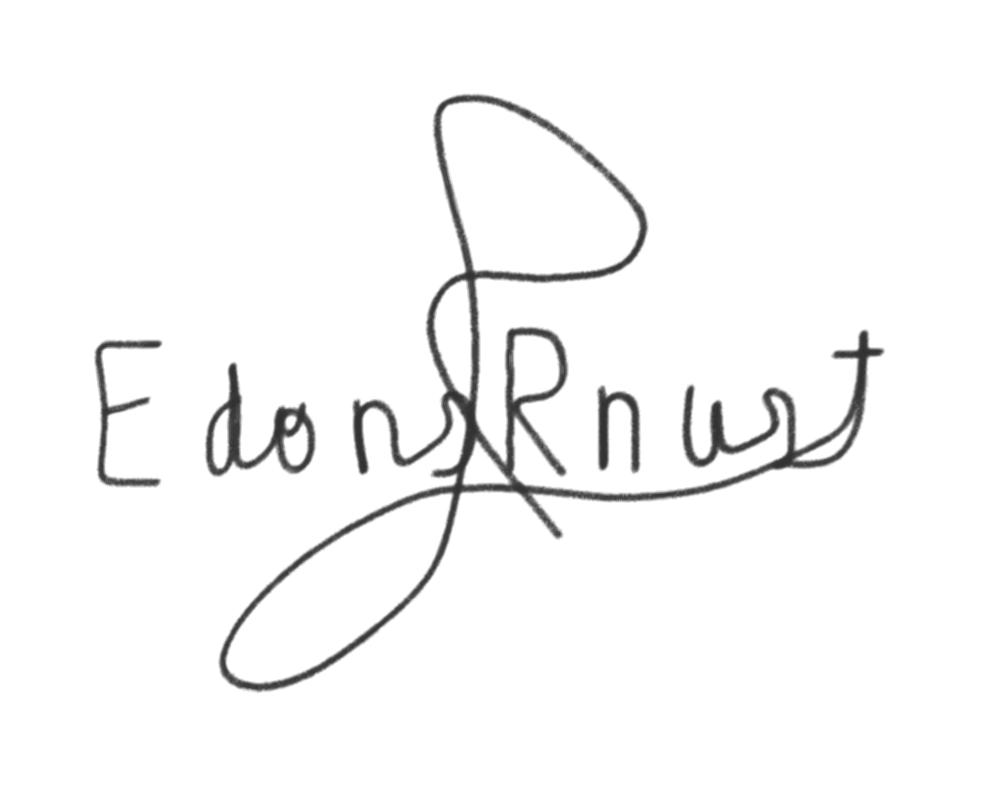 Edons Rnust